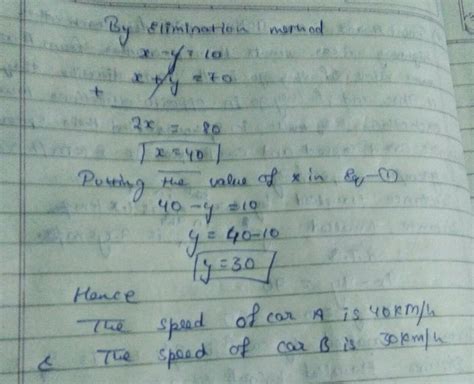 By Elimination method
x - y = 10
x + y = 70
+
2x = 80
x = 40
Putting the value of x in Eq-(1)
40 - y = 10
y = 40-10
y = 30
Hence
The speed of car A is 40km/h
& The speed of car B is 30km/h